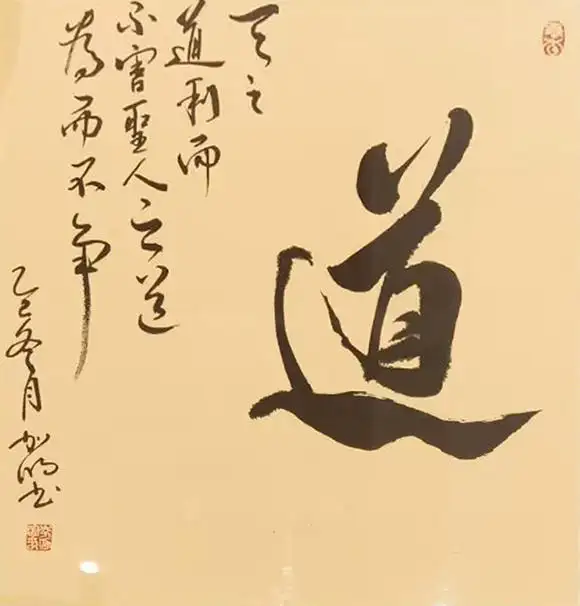 道
天之
道利而
不害聖人之道
為而不争
乙巳冬月